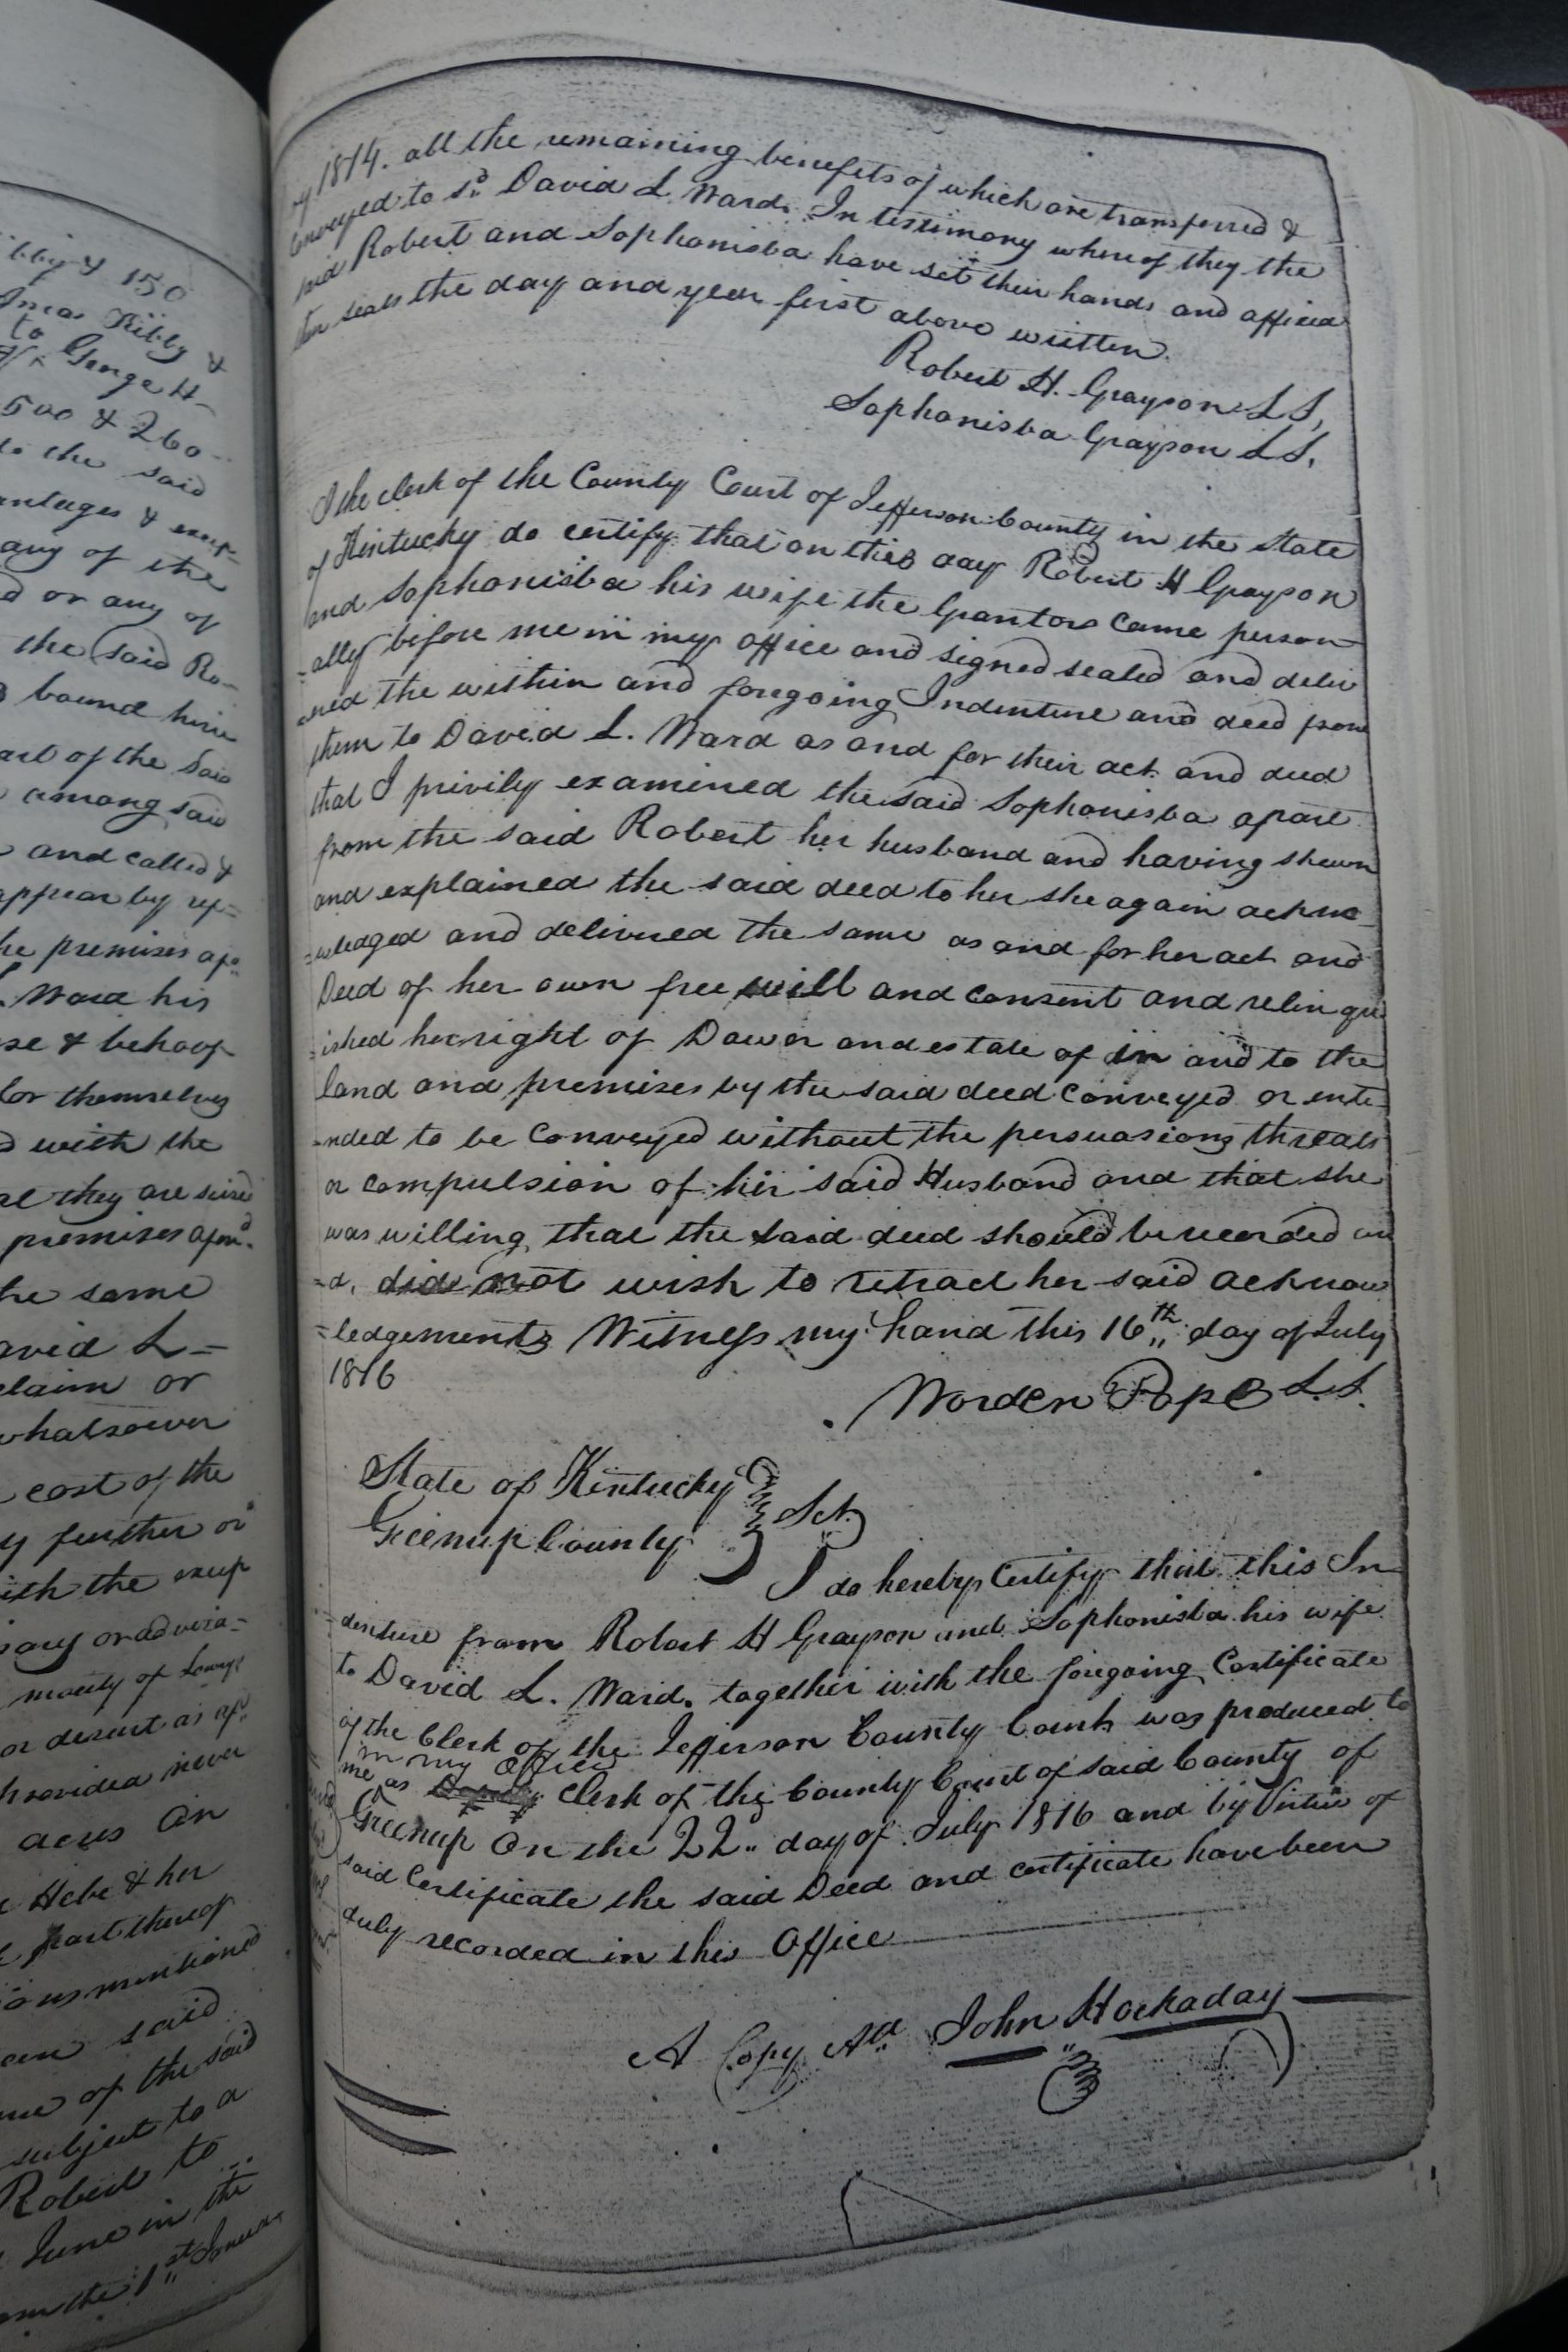 bby & 150
Kibby &
to George H-
500 & 260-
to the said
antages & exup-
any of the
d or any of
the said Ro-
bound him
art of the said
among said
and called &
appear by ref=
he premises afo
Ward his
se & behoof
for themselves
d with the
at they are seized
premises afore.
he same
avid L=
claim or
whatsoever
cost of the
y further or
ith the exup
moiety of
or desert as af
provided never
acres on
Hebe & her
part thereof
mentioned
said
me of the said
subject to a
Robert to
June in the
om the 1st January
ry 1814. all the remaining benefits of which are transferred &
conveyed to sd. David L Ward. In testimony whereof they the
said Robert and Sophonisba have set their hands and affixed
their seals the day and year first above written.
Robert H. Grayson L S,
Sophonisba Grayson L S.
I the clerk of the County Court of Jefferson County in the State
of Kentucky do certify that on this day Robert H Grayson
and Sophonisba his wife the Grantors came person-
=ally before me in my office and signed sealed and deliv
ered the within and foregoing Indenture and deed from
them to David L. Ward as and for their act and deed
that I privily examined the said Sophonisba apart
from the said Robert her husband and having shewn
and explained the said deed to her she again ackno
=wledged and delivered the same as and for her act and
Deed of her own free will and consent and relinqu
=ished her right of Dower and estate of in and to the
land and premises by the said deed conveyed or inte-
-nded to be conveyed without the persuasions threats
or compulsion of her said Husband and that she
was willing that the said deed should be recorded an
=d, did not wish to retract her said acknow
=ledgements Witness my hand this 16th day of July
1816
Worden Pope L.S.
State of Kentucky } Sct.
Greenup County }
I do hereby Certify that this In-
-denture from Robert H Grayson and Sophonisba his wife
to David L. Ward. together with the foregoing Certificate
of the Clerk of the Jefferson County Court was produced to
in my office
me ^ as Deputy Clerk of the County Court of said County of
Greenup on the 22.. day of July 1816 and by Virtue of
said Certificate the said Deed and certificate have been
duly recorded in this Office
A Copy Att John Hockaday